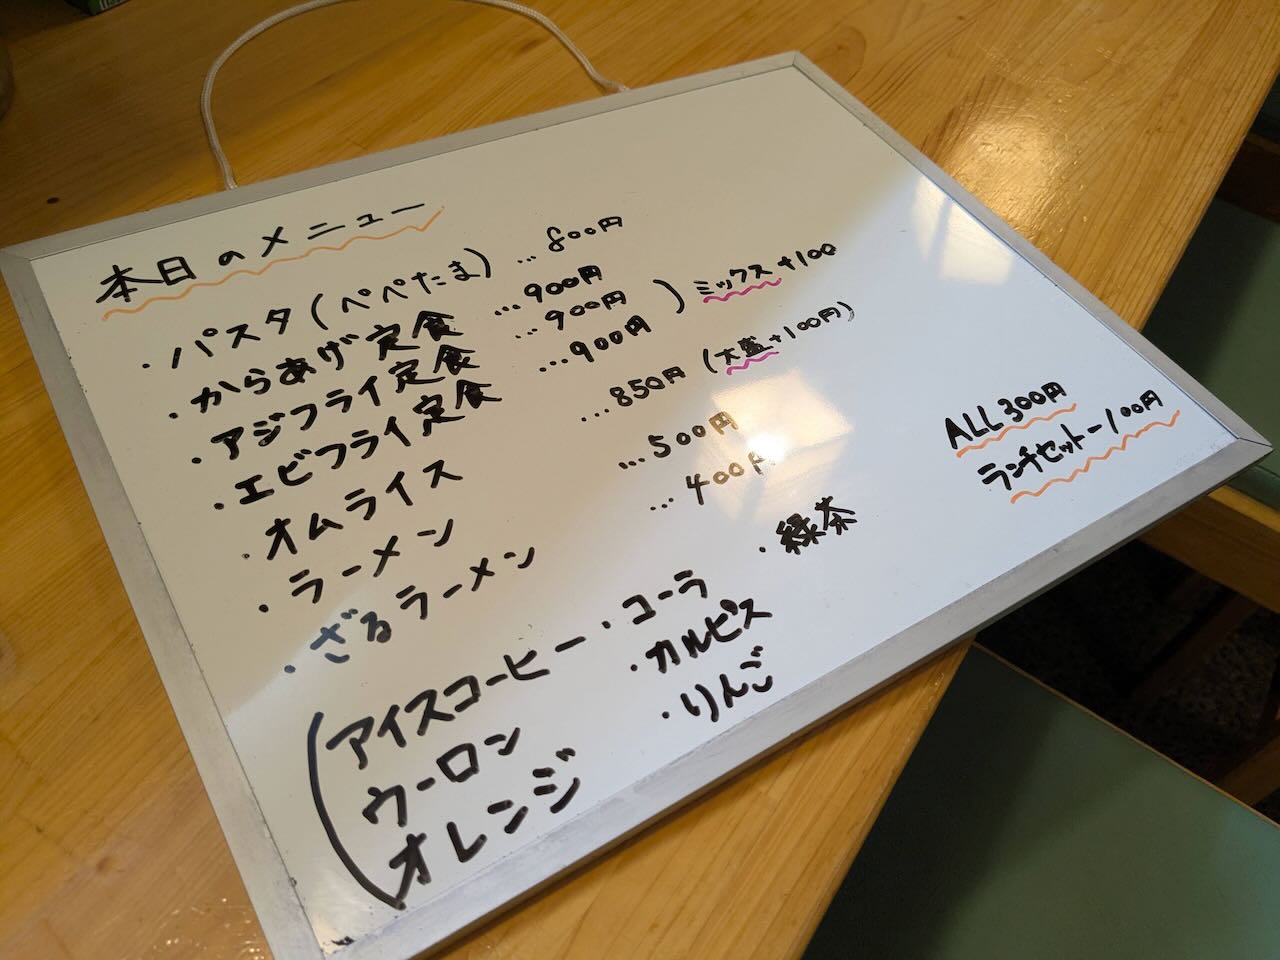 本日のメニュー
・パスタ(ペペたま) …800円
・からあげ定食 …900円
・アジフライ定食 …900円 ) ミックス+100
・エビフライ定食 …900円
・オムライス …850円(大盛+100円)
・ラーメン …500円
・ざるラーメン …400円
ALL300円
ランチセット-100円
(アイスコーヒー ・コーラ ・緑茶
ウーロン ・カルピス
オレンジ ・りんご